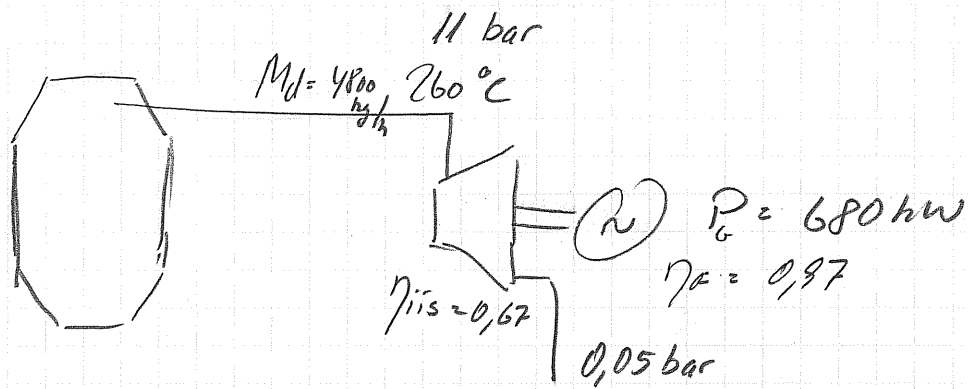 11 bar
Md= 4800 kg/h, 260 °C
~ PG = 680 kW
ηG = 0,97
ηiis = 0,67
0,05 bar